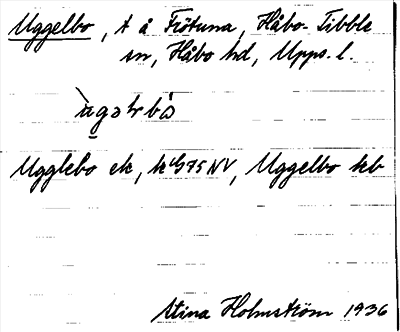 Uggelbo, t å Frötuna, Håbo-Tibble
sn, Håbo hd, Upps. l.
Ugglebo ek, k G75 NV, Uggelbo kb
Stina Holmström 1936